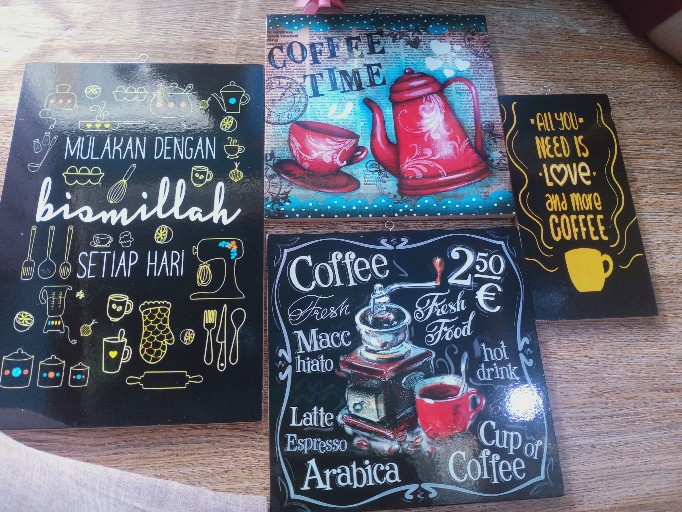 MULAKAN DENGAN
bismillah
SETIAP HARI
COFFEE
TIME
"ALL YOU"
NEED IS
LOVE
and more
COFFEE
Coffee
2.50
€
Fresh
Fresh
Food
Macc
hiato
hot
drink
Latte
Espresso
Arabica
Cup of
Coffee